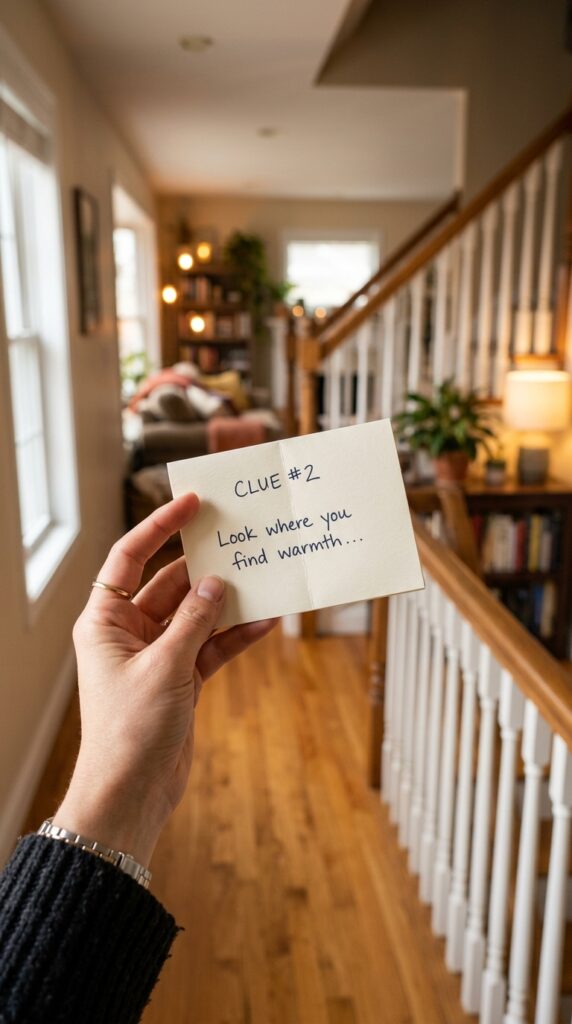 CLUE #2
Look where you
find warmth...